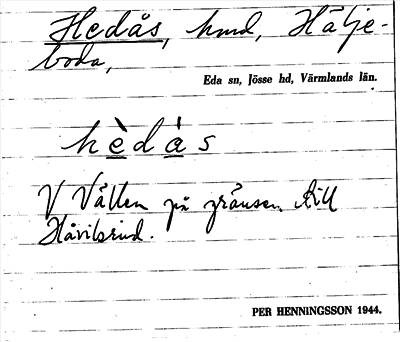 Hedås, hmd, Hälje-
boda,
Eda sn, Jösse hd, Värmlands län.
hèdás
V Vällen på gränsen till
Håvilsrud.
PER HENNINGSSON 1944.